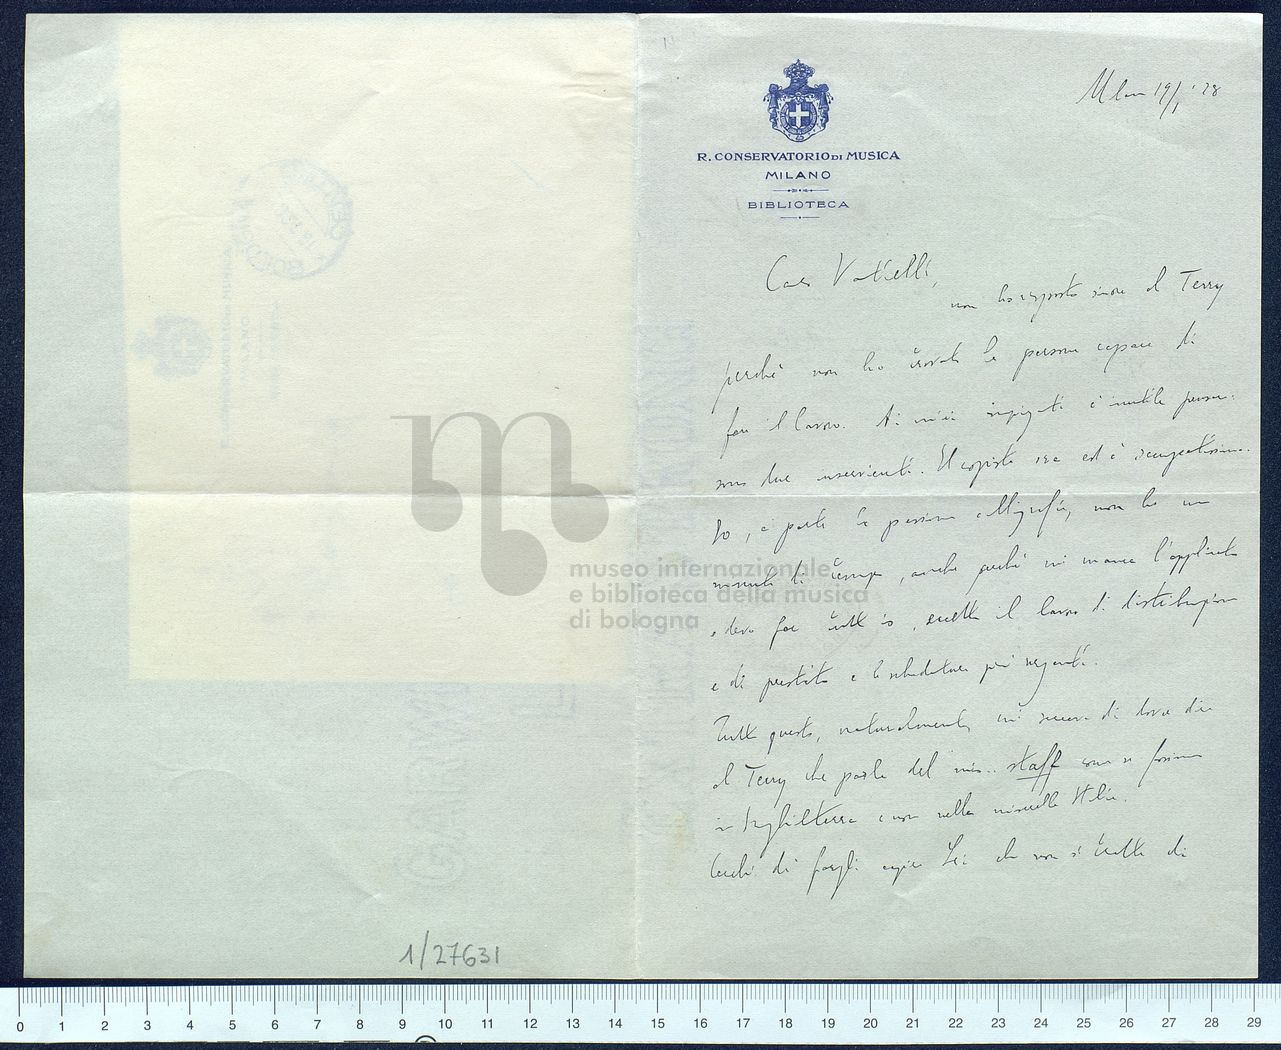 Milano 19/1/'28
R. CONSERVATORIO DI MUSICA
MILANO
BIBLIOTECA
Caro Vatielli,
non ho risposto ancora al Terry
perché non ho trovato la persona capace di
fare il lavoro. Ai miei impiegati è inutile pensare:
sono due inservienti. Il copista ora ed è occupatissimo.
Io, a parte la pessima calligrafia, non ho un
minuto di tempo, anche perché mi manca l'applicato
e devo far tutto io, eccetto il lavoro di distribuzione
e di prestito e le schedature più urgenti.
Tutto questo, naturalmente, mi secca di dover dire
al Terry che parla del mio.. staff come se fossimo
in Inghilterra e non nella miserella Italia.
Cerchi di fargli capire Lei che non si tratta di
1/27631
museo internazionale
e biblioteca della musica
di bologna
0 1 2 3 4 5 6 7 8 9 10 11 12 13 14 15 16 17 18 19 20 21 22 23 24 25 26 27 28 29